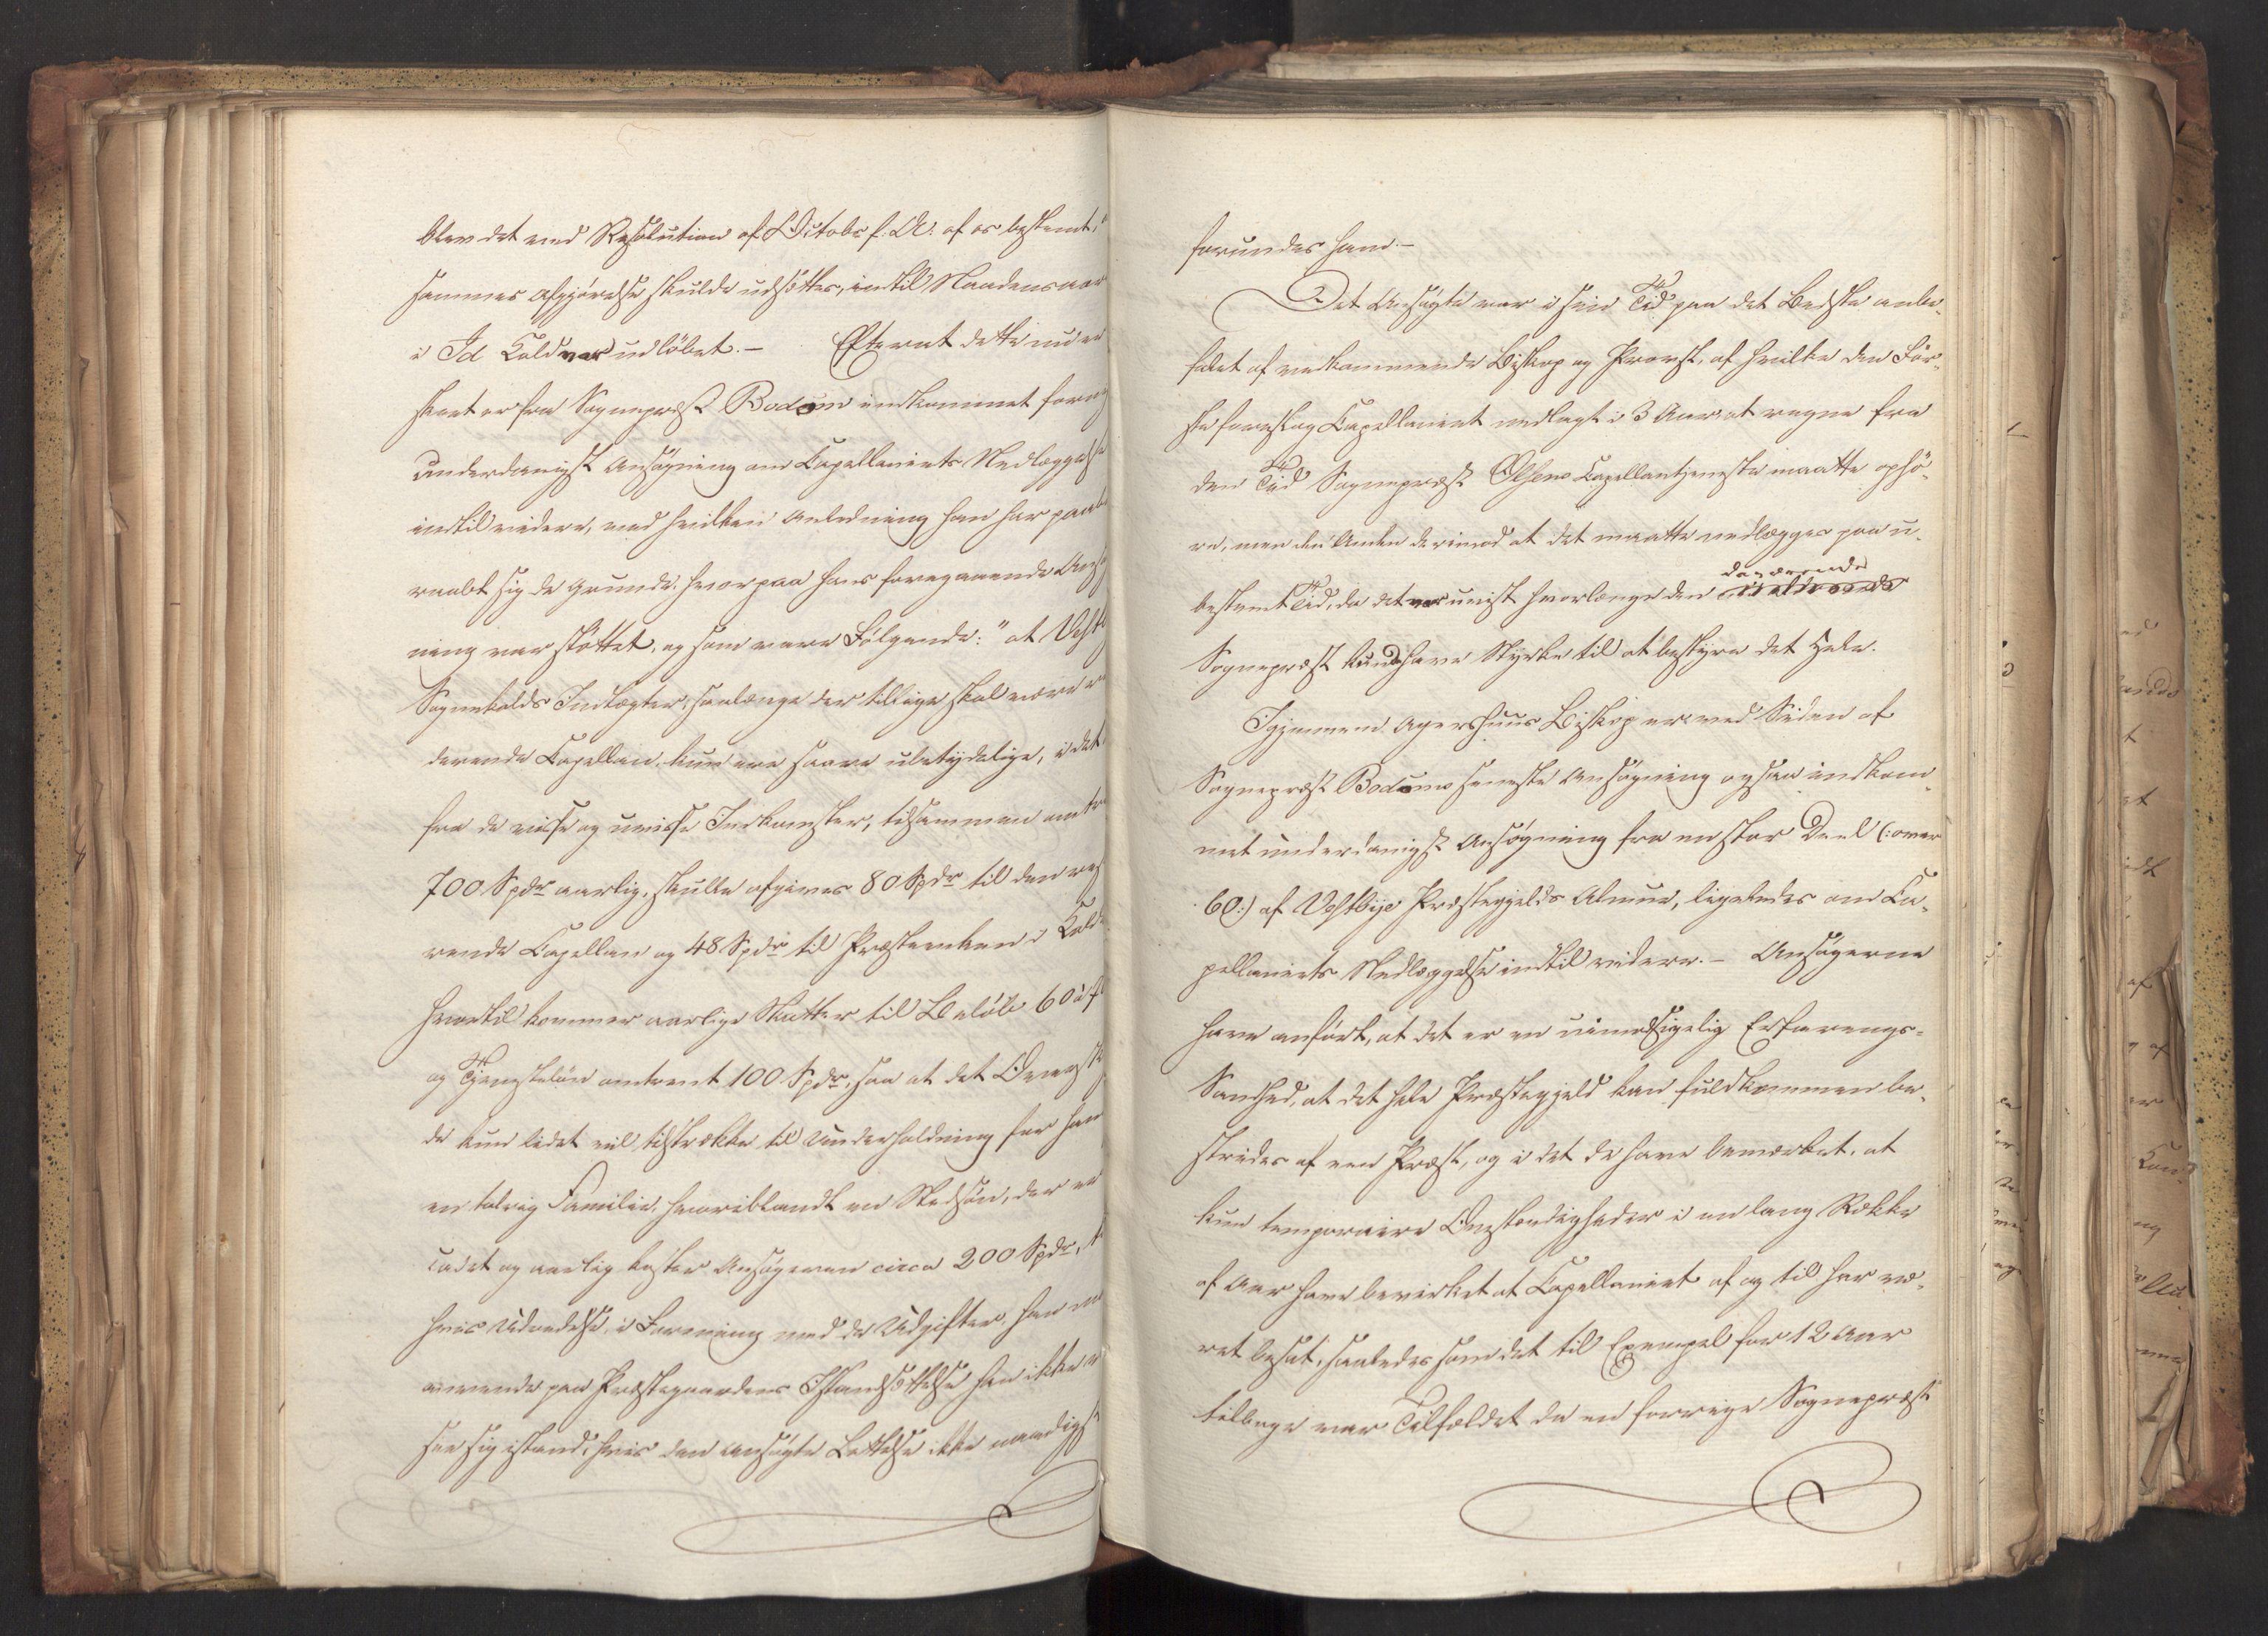 blev det ved Resolution af Octobr f. A. af os bestemt, 
sammes Afgjørelse skulde udsættes, indtil Naadensaar
i Id Kald var udløbet.— Efterat dette nu er
skeet er fra Sognepræst Bodom indkommet forny
underdanigst Ansøgning om Capellaniets Nedlæggelse
indtil videre, ved hvilken Anledning han har paabe
raabt sig de Grunde, hvorpaa hans foregaaende Ansøg
ning var støttet, og som vare Følgende: "at Vestb
Sognekalds Indtægter, saalænge der tillige skal være re
derende Capellan, kun ere saare ubetydelige, i det
fra de visse og uvisse Indkomster, tilsammen omtr
700 Spdr aarlig, skulle afgives 80 Spdr til den resi
rende Capellan og 48 Spdr til Præsteenken i Kald
hvortil kommer aarlige Skatter til Beløb 60 a 7
og Tjenesteløn omtrent 100 Spdr, saa at det Overskyd
de kun lidet vil tilstrække til Underholdning for ham
en talrig Familie, hvoriblandt en Stedsøn, der er
Cadet og aarlig koster Ansøgeren circa 200 Spdr,
hvis Udredelse, i Forening med de Udgifter, han
anvende paa Præstegaardens Istandsættelse han ikke
see sig istand, hvis den ansøgte Lettelse ikke naadigst
forundes ham.—
Det Ansøgte var i sin Tid paa det Bedste anbe¬
falet af vedkommende Biskop og Provst, af hvilke den Før¬
ste foreslog Capellaniet nedlagt i 3 Aar, at regne fra
den Tid Sognepræst Olsens Capellantjeneste maatte ophø¬
re, men den Anden derimod at det maatte nedlægges paa u¬
bestemt Tid, da det var uvist hvorlænge den daværende
Sognepræst kunde have Styrke til at bestyre det Hele.
Igjennem Agershuus Biskop er ved Siden af
Sognepræst Bodoms seneste Ansøgning ogsaa indkom¬
met underdanigst Ansøgning fra en stor Deel (: over
60 :) af Vestbye Præstegjelds Almue, ligeledes om Ca¬
pellaniets Nedlæggelse indtil videre.— Ansøgerne
have anført, at det er en uimodsigelig Erfarings-
Sandhed, at det hele Præstegjeld kan fuldkommen be¬
strides af een Præst, og i det de have bemærket, at
kun temporaire Omstændigheder i en lang Række
af Aar have bevirket at Capellaniet af og til har væ¬
ret besat, saaledes som det til Exempel for 12 Aar
tilbage var Tilfældet da en forrige Sognepræst